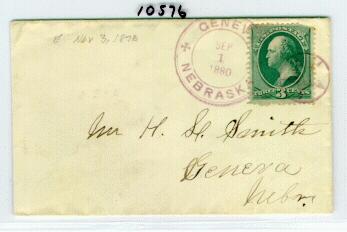 10576
E Nov 3, 1878
GENEVA
SEP
1
1880
NEBRASKA
U.S. POSTAGE
THREE 3 CENTS
Mr H. St. Smith
Geneva
Nebr.